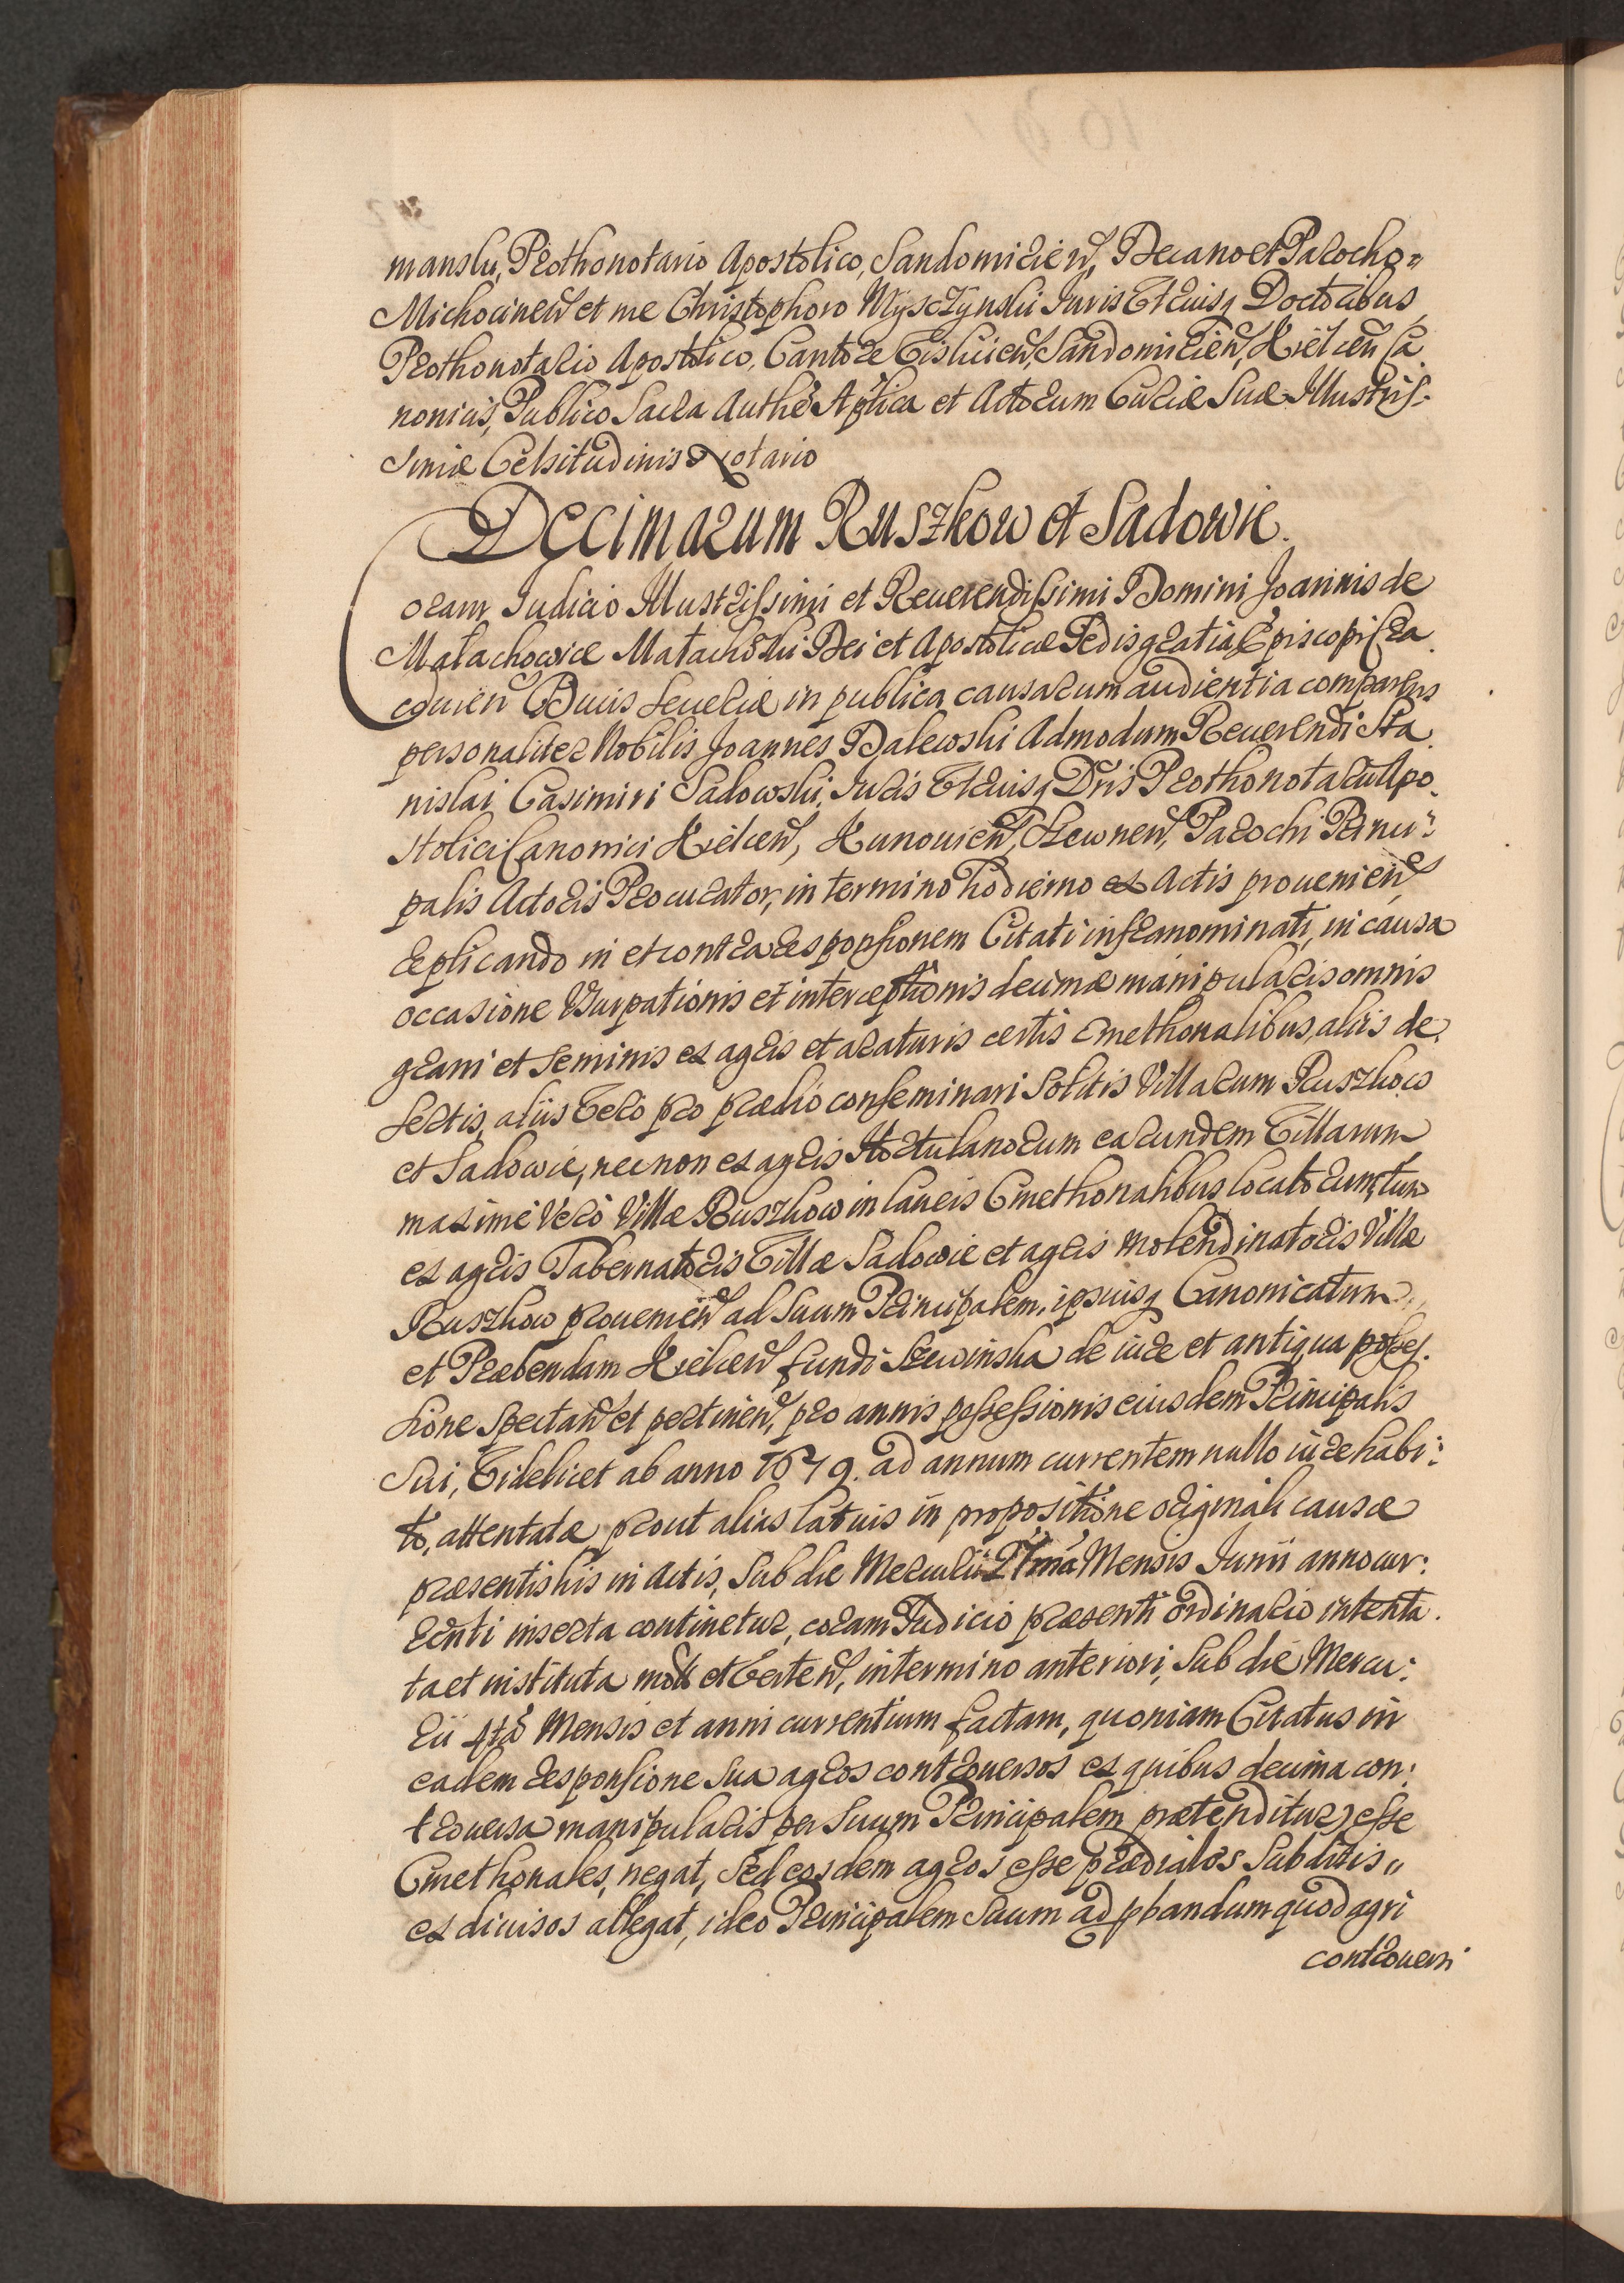 manslu, Prothonotario Apostolico, Sandomirien, Decano et Parocho"
Michocinen et me Christophoro Myszczynski Juris Vtriusq Doctoribus,
Prothonotario Apostolico, Cantore Vislicien, Sandomirien, Kielcen Ca
nonicis, Publico Sacra Authe Aplica et Actorum Curiæ Suæ Illustris-
simæ Celsitudinis Notario
Decimarum Ruszkow et Sadowie.
Coram Judicio Illustrissimi et Reuerendissimi Domini Joannis de
Małachowice Małachoski Dei et Apostolicæ Sedis gratia Episcopi Cra
couien Ducis Seueriæ in publica causarum audientia comparens
personaliter Nobilis Joannes Dalewski Admodum Reuerendi Sta
nislai Casimiri Sadowski, Juris Vtriusq Dris Prothonotarii Apo
stolici Canonici Kielcen, Kunouien, Szewnen, Parochi Princi:
palis Actoris Procurator, in termino hodierno ex Actis prouenien,
replicando in et contra responsionem Citati infranominati, in causa
occasione Vsurpationis et interceptionis decimæ manipularis omnis
grani et seminis ex agris et araturis certis Cmethonalibus, aliis de
sertis, aliis Vero pro prædio conseminari solitis Villarum Ruszkow
et Sadowie, necnon ex agris Hortulanorum earundem Villarum
maxime Vero Villæ Ruszkow in laneis Cmethonalibus locatorum, tum
ex agris Tabernatoris Villæ Sadowie et agris Molendinatoris Villæ
Ruszkow prouenien ad Suum Principalem, ipsiusq Canonicatum
et Præbendam Kielcen fundi Szewinska de iure et antiqua posses.
sione Spectan et pertinen, pro annis possessionis eiusdem Principalis
Sui, Videlicet ab anno 1679. ad annum currentem nullo iure habi:
to, attentatæ prout alias latius in propositione originali causæ
præsentis his in Actis, sub die Mercurii 27ma Mensis Junii anno cur:
renti inserta continetur, coram Judicio præsenti ordinario intenta.
ta et instituta mot et Verten, in termino anteriori, sub die Mercu:
rii 4ta Mensis et anni currentium factam, quoniam Citatus in
eadem responsione sua agros controuersos ex quibus decima con:
trouersa manipularis per Suum Principalem prætenditur, esse
Cmethonales, negat, sed eosdem agros esse prædiales Subditis"
ex diuisos allegat, ideo Principalem Suum ad pbandum quod agri
controuersi